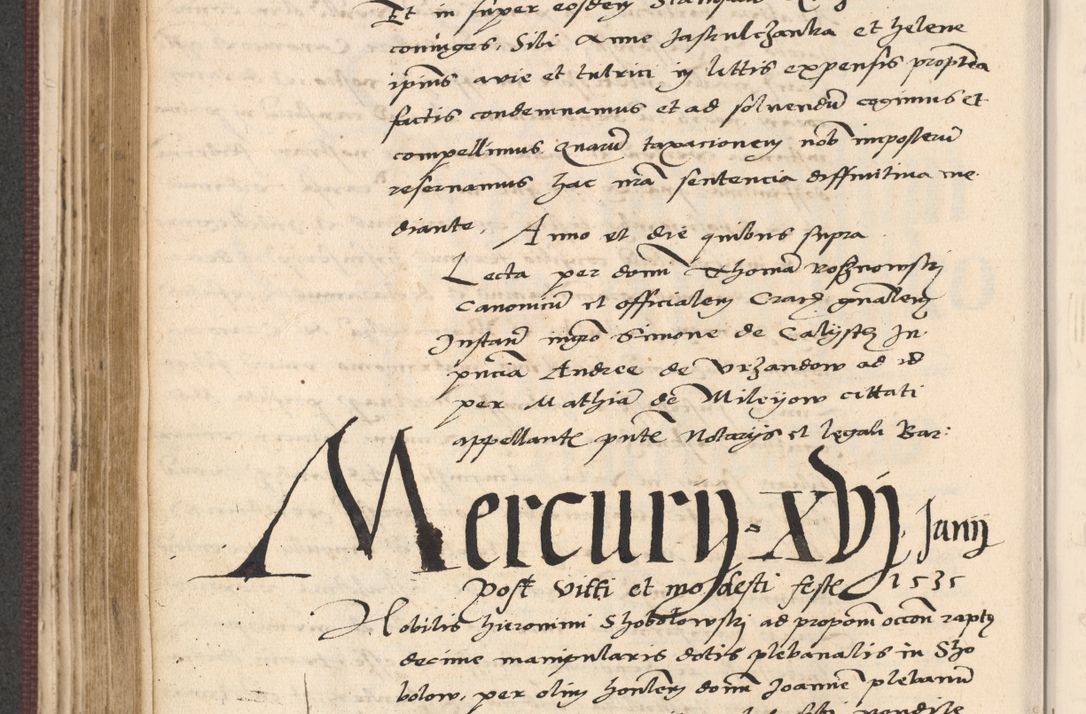 Et in super eosdem
coniuges, Sibi Anne Jaskulczanka et helene
ipius avie et tutrici in littis expensis proptea
factis condemnamus et ad solvendu cogimus et
compellimus quaru taxacionem nob imposteru
reservamus hac nra sentencia diffinitiva me
diante. Anno et die quibus supra
Lecta per domi Thoma Rosznowskj
Canonicu et officialem Crac gnalem
Instan mgro Simone de Calyste In
pncia Andree de Vrzandow ad id
per Mathia de Mileyow cittati
appellante pnte Notarijs et legali Bar:
Mercurij xvj Junij
post Viti et modesti feste 1535
Nobilis hieronimi Shobolowskj ad propom occom rapty
decime manipularis dotis plebanalis in Sho
bolow, per olim honlem domi Joannem plebanu